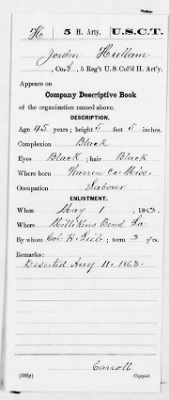 H 5 H. Arty. U.S.C.T.
Jordin Hullam
, Co. , 5 Reg't U.S. Col'd H. Art'y.
Appears on
Company Descriptive Book
of the organization named above.
DESCRIPTION.
Age 45 years; height 5 feet 5 inches.
Complexion Black
Eyes Black; hair Black
Where born Warren Co. Miss.
Occupation Labour
ENLISTMENT.
When May 1, 1863.
Where Millikens Bend La
By whom Col. H. ; term 3 y'rs.
Remarks:
Deserted Aug 11. 1863.
Carroll
Copyist.